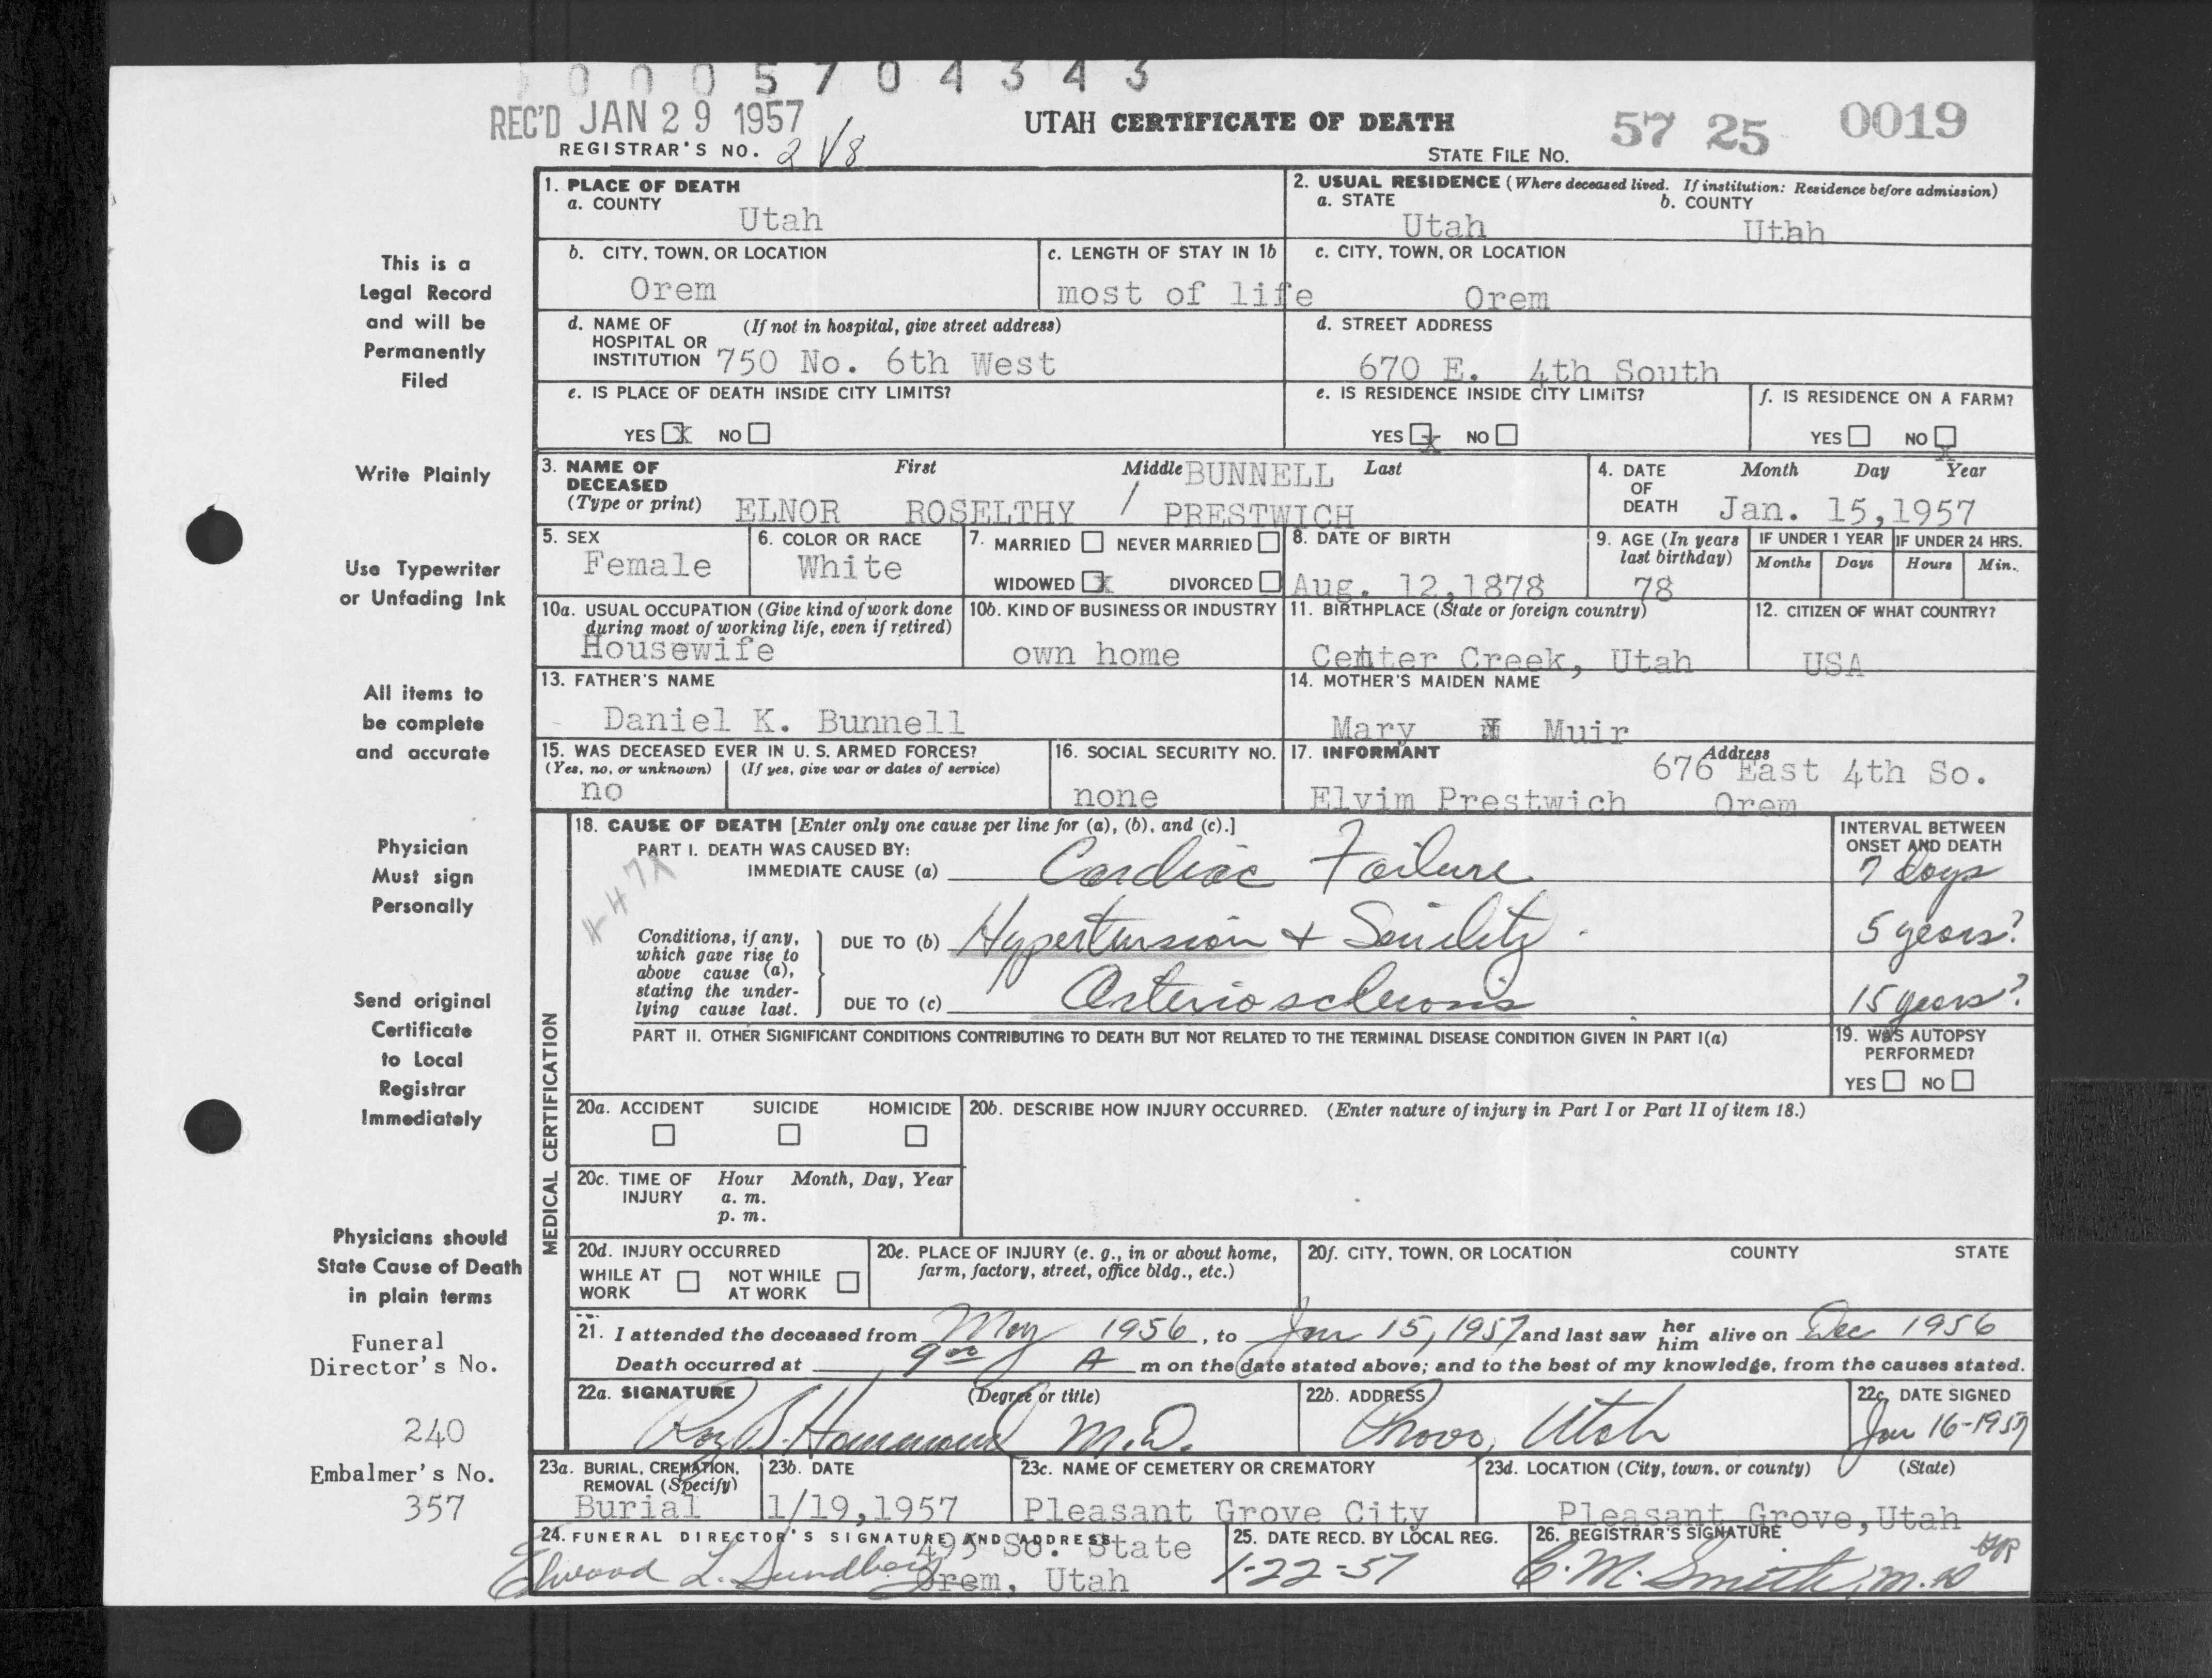 0005704343
REC'D JAN 29 1957
UTAH CERTIFICATE OF DEATH
57 25 0019
REGISTRAR'S NO.
STATE FILE NO.
This is a
Legal Record
and will be
Permanently
Filed
Write Plainly
Use Typewriter
or Unfading Ink
All items to
be complete
and accurate
Physician
Must sign
Personally
Send original
Certificate
to Local
Registrar
Immediately
Physicians should
State Cause of Death
in plain terms
Funeral
Director's No.
240
Embalmer's No.
357
1. PLACE OF DEATH
a. COUNTY
Utah
2. USUAL RESIDENCE (Where deceased lived. If institution: Residence before admission)
a. STATE b. COUNTY
Utah Uthh
b. CITY, TOWN, OR LOCATION
Orem
c. LENGTH OF STAY IN 1b
most of life
c. CITY, TOWN, OR LOCATION
Orem
d. NAME OF (If not in hospital, give street address)
HOSPITAL OR
INSTITUTION 750 No. 6th West
d. STREET ADDRESS
670 E. 4th South
e. IS PLACE OF DEATH INSIDE CITY LIMITS?
YES X NO
e. IS RESIDENCE INSIDE CITY LIMITS?
YES X NO
f. IS RESIDENCE ON A FARM?
YES NO X
3. NAME OF First Middle BUNNELL Last
DECEASED
(Type or print) ELNOR ROSELTHY / PRESTWICH
4. DATE Month Day Year
OF
DEATH Jan. 15,1957
5. SEX
Female
6. COLOR OR RACE
White
7. MARRIED NEVER MARRIED
WIDOWED X DIVORCED
8. DATE OF BIRTH
Aug. 12,1878
9. AGE (In years
last birthday)
78
IF UNDER 1 YEAR IF UNDER 24 HRS.
Months Days Hours Min.
10a. USUAL OCCUPATION (Give kind of work done
during most of working life, even if retired)
Housewife
10b. KIND OF BUSINESS OR INDUSTRY
own home
11. BIRTHPLACE (State or foreign country)
Center Creek, Utah
12. CITIZEN OF WHAT COUNTRY?
USA
13. FATHER'S NAME
Daniel K. Bunnell
14. MOTHER'S MAIDEN NAME
Mary Muir
15. WAS DECEASED EVER IN U. S. ARMED FORCES?
(Yes, no, or unknown) (If yes, give war or dates of service)
no
16. SOCIAL SECURITY NO.
none
17. INFORMANT Address
676 East 4th So.
Elvim Prestwich Orem
MEDICAL CERTIFICATION
18. CAUSE OF DEATH [Enter only one cause per line for (a), (b), and (c).]
PART I. DEATH WAS CAUSED BY:
IMMEDIATE CAUSE (a) Cardiac Failure
INTERVAL BETWEEN
ONSET AND DEATH
7 days
Conditions, if any,
which gave rise to
above cause (a),
stating the under-
lying cause last.
DUE TO (b) Hypertension + Senility
5 years?
DUE TO (c) Arteriosclerosis
15 years?
PART II. OTHER SIGNIFICANT CONDITIONS CONTRIBUTING TO DEATH BUT NOT RELATED TO THE TERMINAL DISEASE CONDITION GIVEN IN PART I(a)
19. WAS AUTOPSY
PERFORMED?
YES NO
20a. ACCIDENT SUICIDE HOMICIDE
20b. DESCRIBE HOW INJURY OCCURRED. (Enter nature of injury in Part I or Part II of item 18.)
20c. TIME OF Hour Month, Day, Year
INJURY a. m.
p. m.
20d. INJURY OCCURRED
WHILE AT NOT WHILE
WORK AT WORK
20e. PLACE OF INJURY (e. g., in or about home,
farm, factory, street, office bldg., etc.)
20f. CITY, TOWN, OR LOCATION COUNTY STATE
21. I attended the deceased from May 1956, to Jan 15, 1957 and last saw her him alive on Dec 1956
Death occurred at 9 00 A m on the date stated above; and to the best of my knowledge, from the causes stated.
22a. SIGNATURE (Degree or title)
Roy B. Hammond M.D.
22b. ADDRESS
Provo, Utah
22c. DATE SIGNED
Jan 16-1957
23a. BURIAL, CREMATION,
REMOVAL (Specify)
Burial
23b. DATE
1/19,1957
23c. NAME OF CEMETERY OR CREMATORY
Pleasant Grove City
23d. LOCATION (City, town, or county) (State)
Pleasant Grove, Utah
24. FUNERAL DIRECTOR'S SIGNATURE AND ADDRESS
495 So. State
Elwood L. Sundberg Orem, Utah
25. DATE RECD. BY LOCAL REG.
1-22-57
26. REGISTRAR'S SIGNATURE
C. M. Smith, M.D.